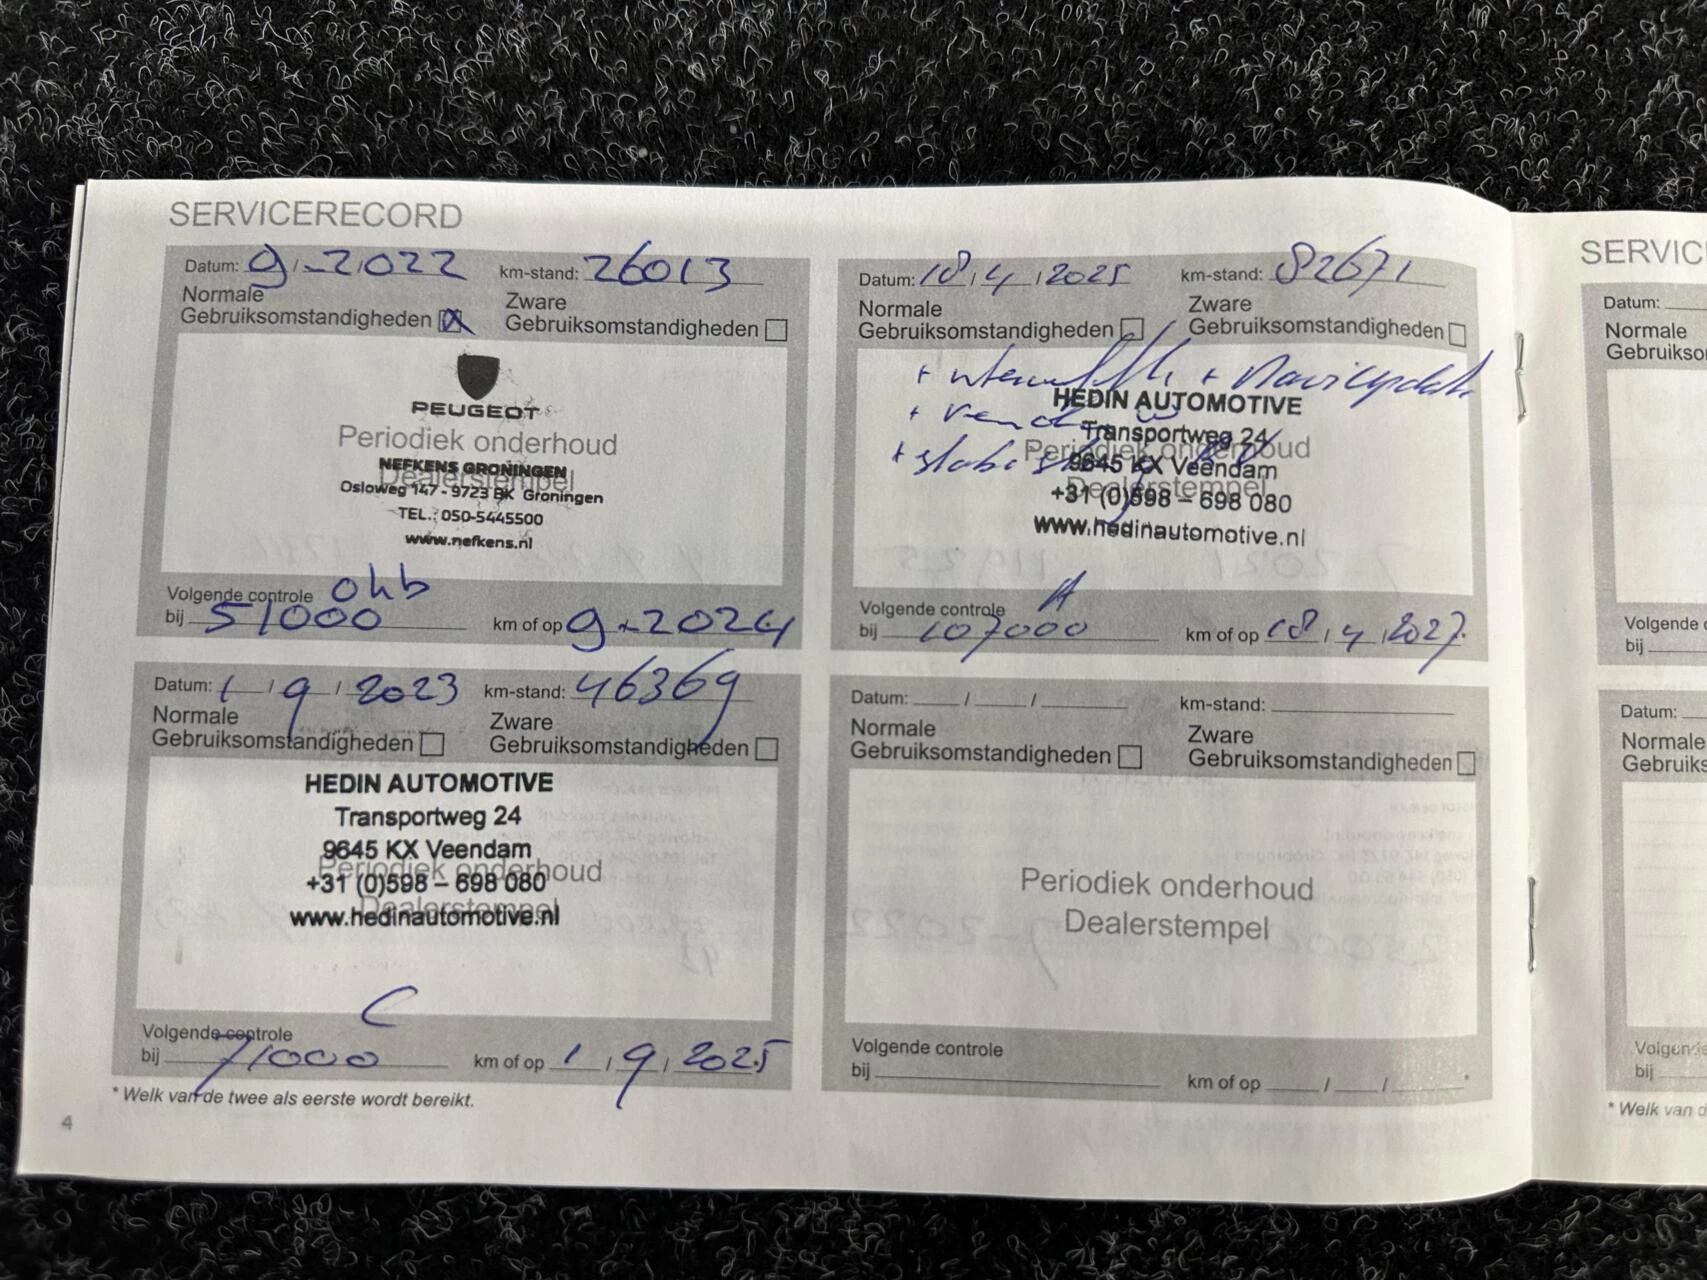 SERVICERECORD
Datum: 9 / - 2 / 022 km-stand: 26013
Normale
Gebruiksomstandigheden
Zware
Gebruiksomstandigheden
PEUGEOT
Periodiek onderhoud
Dealerstempel
NEFKENS GRONINGEN
Osloweg 147 - 9723 BK Groningen
TEL.: 050-5445500
www.nefkens.nl
Volgende controle ohb
bij 51000 km of op 9 - 2024
Datum: 1 / 9 / 2023 km-stand: 46369
Normale
Gebruiksomstandigheden
Zware
Gebruiksomstandigheden
HEDIN AUTOMOTIVE
Transportweg 24
9645 KX Veendam
Periodiek onderhoud
+31 (0)598 – 698 080
Dealerstempel
www.hedinautomotive.nl
C
Volgende controle
bij 71000 km of op 1 / 9 / 2025
* Welk van de twee als eerste wordt bereikt.
4
Datum: 18 / 4 / 2025 km-stand: 82671
Normale
Gebruiksomstandigheden
Zware
Gebruiksomstandigheden
+ + Navi update
HEDIN AUTOMOTIVE
+
Transportweg 24
Periodiek onderhoud
+
9645 KX Veendam
Dealerstempel
+31 (0)598 – 698 080
www.hedinautomotive.nl
Volgende controle A
bij 107000 km of op 18 / 4 / 2027
Datum: / / km-stand:
Normale
Gebruiksomstandigheden
Zware
Gebruiksomstandigheden
Periodiek onderhoud
Dealerstempel
Volgende controle
bij km of op / / .
SERVIC
Datum:
Normale
Gebruikso
Volgende c
bij
Datum:
Normale
Gebruiks
Volgende
bij
* Welk van d